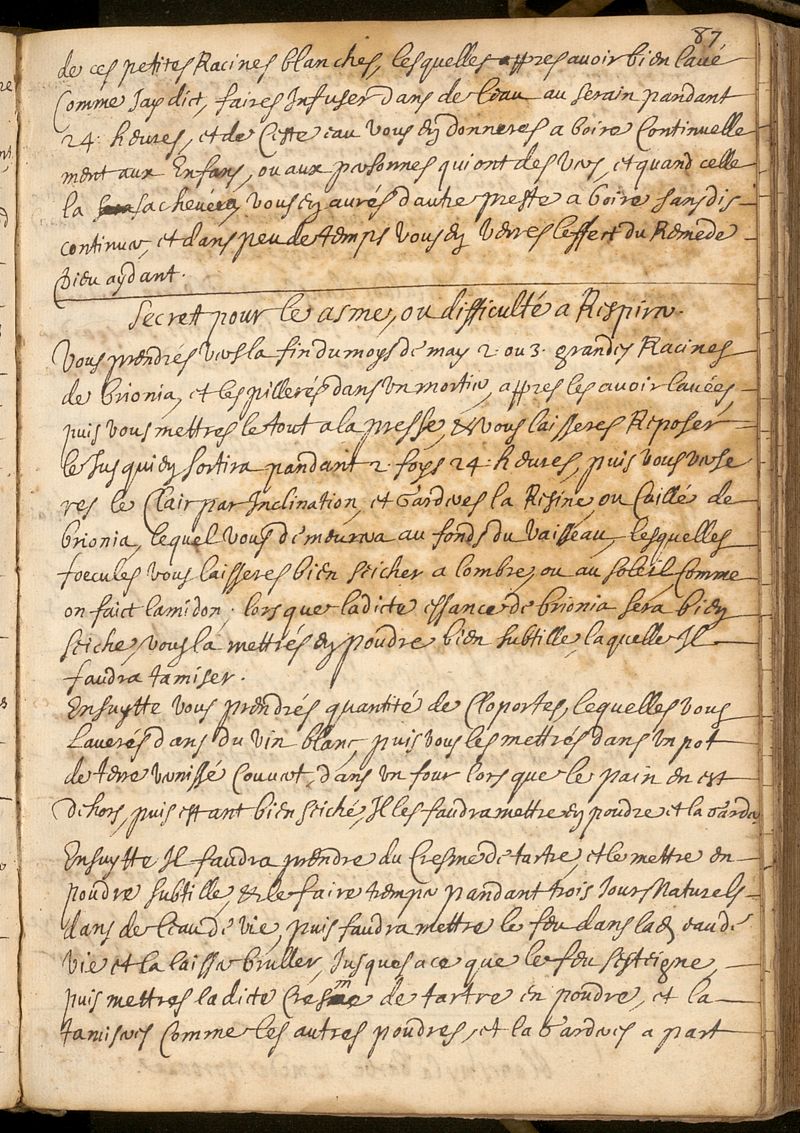 87
de ces petites Racines blanches, lesquelles appres avoir bien lavé
Comme Jay dict, faires Infuser dans de leau au serain pandant
24: heures, et de Ceste eau vous en donneres a boire Continuelle
ment aux Enfans, ou aux personnes qui ont des vers, et quand celle
la sera achevée, vous en aurés d'autre preste a boire sans dis-
continuer, et dans peu de temps vous en verres leffert du Remede
Dieu aydant.
Secret pour le asme, ou difficulté a Respirer.
Vous prendrés vers la fin du moys de may 2. ou 3. grandes Racines
de brionia, et les pillerés dans un mortier, appres les avoir lavées,
puis vous mettres le tout a la presse, & vous laisseres Reposer
le Jus qui en sortira pandant 2. foys 24. heures, puis vous verse
res le Clair par Inclination, et Garderes la Resine, ou Caillé de
brionia, lequel vous demeurera au fonds du vaisseau, lesquelles
foecules vous laisseres bien seicher a lombre, ou au soleil, Comme
on faict lamidon. lors que ladicte essance de brionia sera bien
seiche, vous la mettrés en poudre bien subtille, laquelle Il
faudra tamiser.
Ensuytte vous prendrés quantité de Cloportes, lequelles vous
Laverés dans du vin blanc, puis vous les mettrés dans un pot
de terre vernissé Couvert, dans un four lors que le pain en est
dehors, puis estant bien seiché, Il les faudra mettre en poudre et la Garder
Ensuytte Il faudra prendre du Cresme de tartre, et le mettre en
poudre subtille, & le faire tremper pandant trois Jours Naturels
dans de leau de vie, puis faudra mettre le feu dans lad. eau de
vie et la laisser bruller, Jusques a ce que le feu sesteigne,
puis mettres ladicte Cresme de tartre en poudre, et la
tamiseres Comme les autres poudres, et la Garderes a part